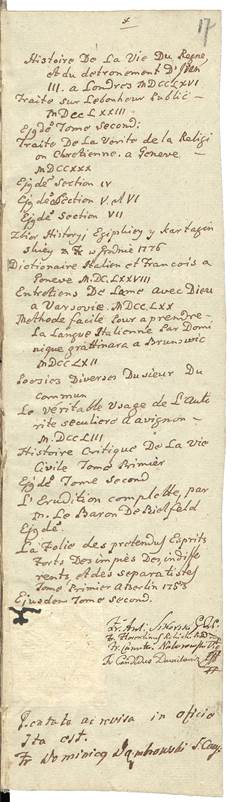 17
Histoire De La Vie Du Regne,
et du detronement D'Iwan
III. a Londres MDCCLXVI
Traite sur Lebonheur Public –
MDccLXXIII.
Ejqde Tome Second.
Traite De La Verite de la Raligi
on Chretienne. a Geneve –
MDCCXXX
Ejqde Section IV
Ejqde Section V. et VI
Ejqde Section VII
Zbior History Egipskiey y Kartagin
skiey w Grodnie 1776
Dictionaire Italien et François a
Geneve M.DC.LXXVIII
Entretiens De Lame avec Dieu
a Varsovie. MDCCLXX
Methode facile Pour aprendre –
La Langue Italienne Par Domi
nique grattinara a Brunswic
MDCCLXII
Poesies Diverses Du sieur Du
commun
Le Veritable Usage de L'Auto
rite seculiere a avignon –
M.DCCLIII
Histoire Critique De La Vie
Civile Tome Primier
Ejqde Tome Second
L'Erudition complette, par
m. Le Baron De Bielfeld
Ejqde.
La Folie des pretendus Esprits
Forts Des impies des indiffe
rents, et des separatistes
Tome Primier a Berlin 1753
Ejusdem Tome Second.
Fr. Ant: Sikorski
Fr.
Fr.
Fr. Candidus
Tentata ac revisa in officio
Ita est.
Fr Dominicq Dąmbrowski